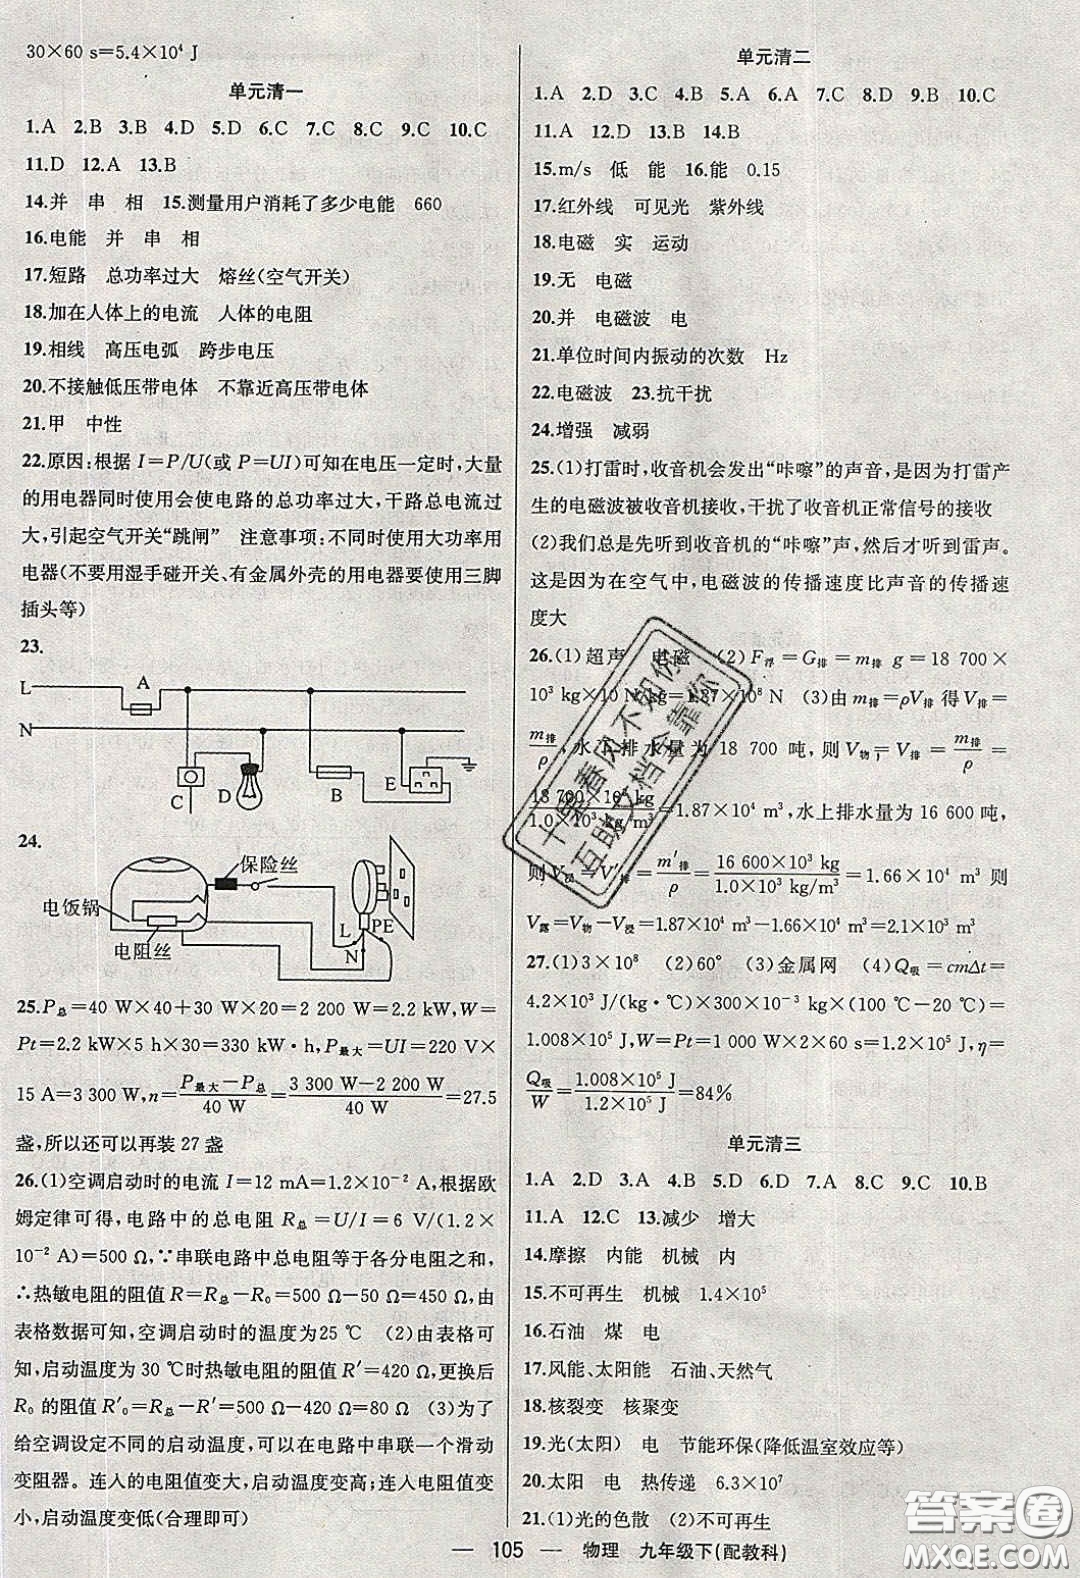 30×60 s=5.4×10⁴ J
单元清一
1.A 2.B 3.B 4.D 5.D 6.C 7.C 8.C 9.C 10.C
11.D 12.A 13.B
14.并 串 相 15.测量用户消耗了多少电能 660
16.电能 并 串 相
17.短路 总功率过大 熔丝(空气开关)
18.加在人体上的电流 人体的电阻
19.相线 高压电弧 跨步电压
20.不接触低压带电体 不靠近高压带电体
21.甲 中性
22.原因:根据 I=P/U(或 P=UI)可知在电压一定时,大量
的用电器同时使用会使电路的总功率过大,干路总电流过
大,引起空气开关“跳闸” 注意事项:不同时使用大功率用
电器(不要用湿手碰开关、有金属外壳的用电器要使用三脚
插头等)
23.
L A
N
C D B E
24.
保险丝
电饭锅
电阻丝
L N PE
25.P总=40 W×40+30 W×20=2.2×10³ W=2.2 kW,W=
Pt=2.2 kW×5 h×30=330 kW·h,P最大=UI=220 V×
15 A=3 300 W,n=(P最大-P总)/40 W=(3 300 W-2 200 W)/40 W=27.5
盏,所以还可以再装 27 盏
26.(1)空调启动时的电流 I=12 mA=1.2×10⁻² A,根据欧
姆定律可得,电路中的总电阻 R总=U/I=6 V/(1.2×
10⁻² A)=500 Ω,∵串联电路中总电阻等于各分电阻之和,
∴热敏电阻的阻值 R=R总-R₀=500 Ω-50 Ω=450 Ω,由
表格数据可知,空调启动时的温度为25 ℃ (2)由表格可
知,启动温度为 30 ℃时热敏电阻的阻值 R′=420 Ω,更换后
R₀ 的阻值 R′₀=R总-R′=500 Ω-420 Ω=80 Ω (3)为了
给空调设定不同的启动温度,可以在电路中串联一个滑动
变阻器。连入的电阻值变大,启动温度变高;连入电阻值变
小,启动温度变低(合理即可)
单元清二
1.A 2.D 3.C 4.B 5.A 6.A 7.C 8.D 9.B 10.C
11.A 12.D 13.B 14.B
15.m/s 低 能 16.能 0.15
17.红外线 可见光 紫外线
18.电磁 实 运动
19.无 电磁
20.并 电磁波 电
21.单位时间内振动的次数 Hz
22.电磁波 23.抗干扰
24.增强 减弱
25.(1)打雷时,收音机会发出“咔嚓”的声音,是因为打雷产
生的电磁波被收音机接收,干扰了收音机正常信号的接收
(2)我们总是先听到收音机的“咔嚓”声,然后才听到雷声。
这是因为在空气中,电磁波的传播速度比声音的传播速
度大
26.(1)超声 电磁 (2)F浮=G排=m排 g=18 700×
10³ kg×10 N/kg=1.87×10⁸ N (3)由 m排=ρV排 得 V排=
m排/ρ,水下排水量为 18 700 吨,则 V物=V排=m排/ρ=
18 700×10³ kg/1.0×10³ kg/m³=1.87×10⁴ m³,水上排水量为 16 600 吨,
则 V浸=V′排=m′排/ρ=16 600×10³ kg/1.0×10³ kg/m³=1.66×10⁴ m³ 则
V露=V物-V浸=1.87×10⁴ m³-1.66×10⁴ m³=2.1×10³ m³
27.(1)3×10⁸ (2)60° (3)金属网 (4)Q吸=cmΔt=
4.2×10³ J/(kg·℃)×300×10⁻³ kg×(100 ℃-20 ℃)=
1.008×10⁵ J,W=Pt=1 000 W×2×60 s=1.2×10⁵ J,η=
Q吸/W=1.008×10⁵ J/1.2×10⁵ J=84%
单元清三
1.A 2.D 3.D 4.D 5.D 6.D 7.A 8.C 9.C 10.B
11.A 12.C 13.减少 增大
14.摩擦 内能 机械 内
15.不可再生 机械 1.4×10⁵
16.石油 煤 电
17.风能、太阳能 石油、天然气
18.核裂变 核聚变
19.光(太阳) 电 节能环保(降低温室效应等)
20.太阳 电 热传递 6.3×10⁷
21.(1)光的色散 (2)不可再生
— 105 — 物理 九年级下(配教科)
千里春风不如你
互联文档会靠你
答案圈
MXQE.COM